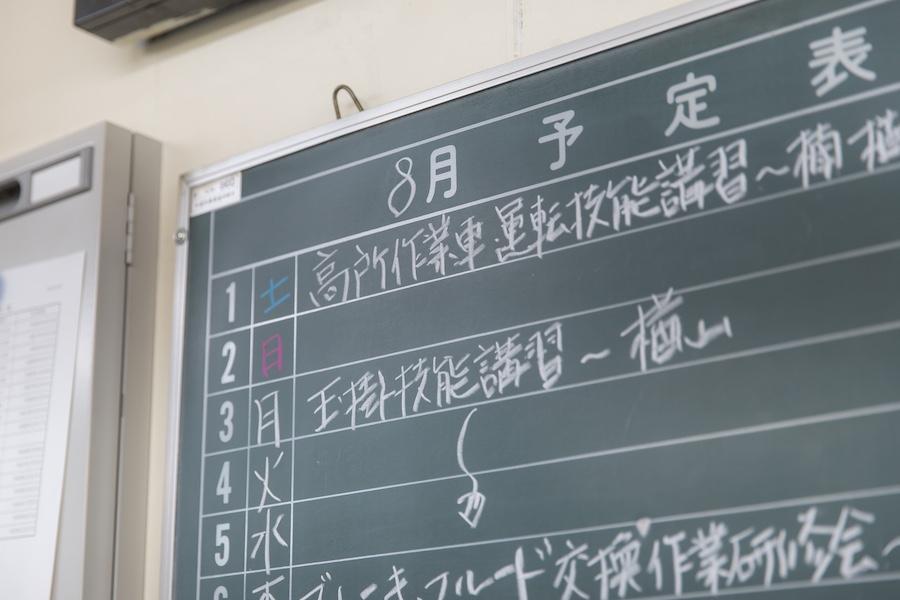 8月 予定表
1 土 高所作業車運転技能講習～楠
2 日
3 月 玉掛技能講習～楢山
4 火
5 水
ブレーキフルード交換作業研修会～